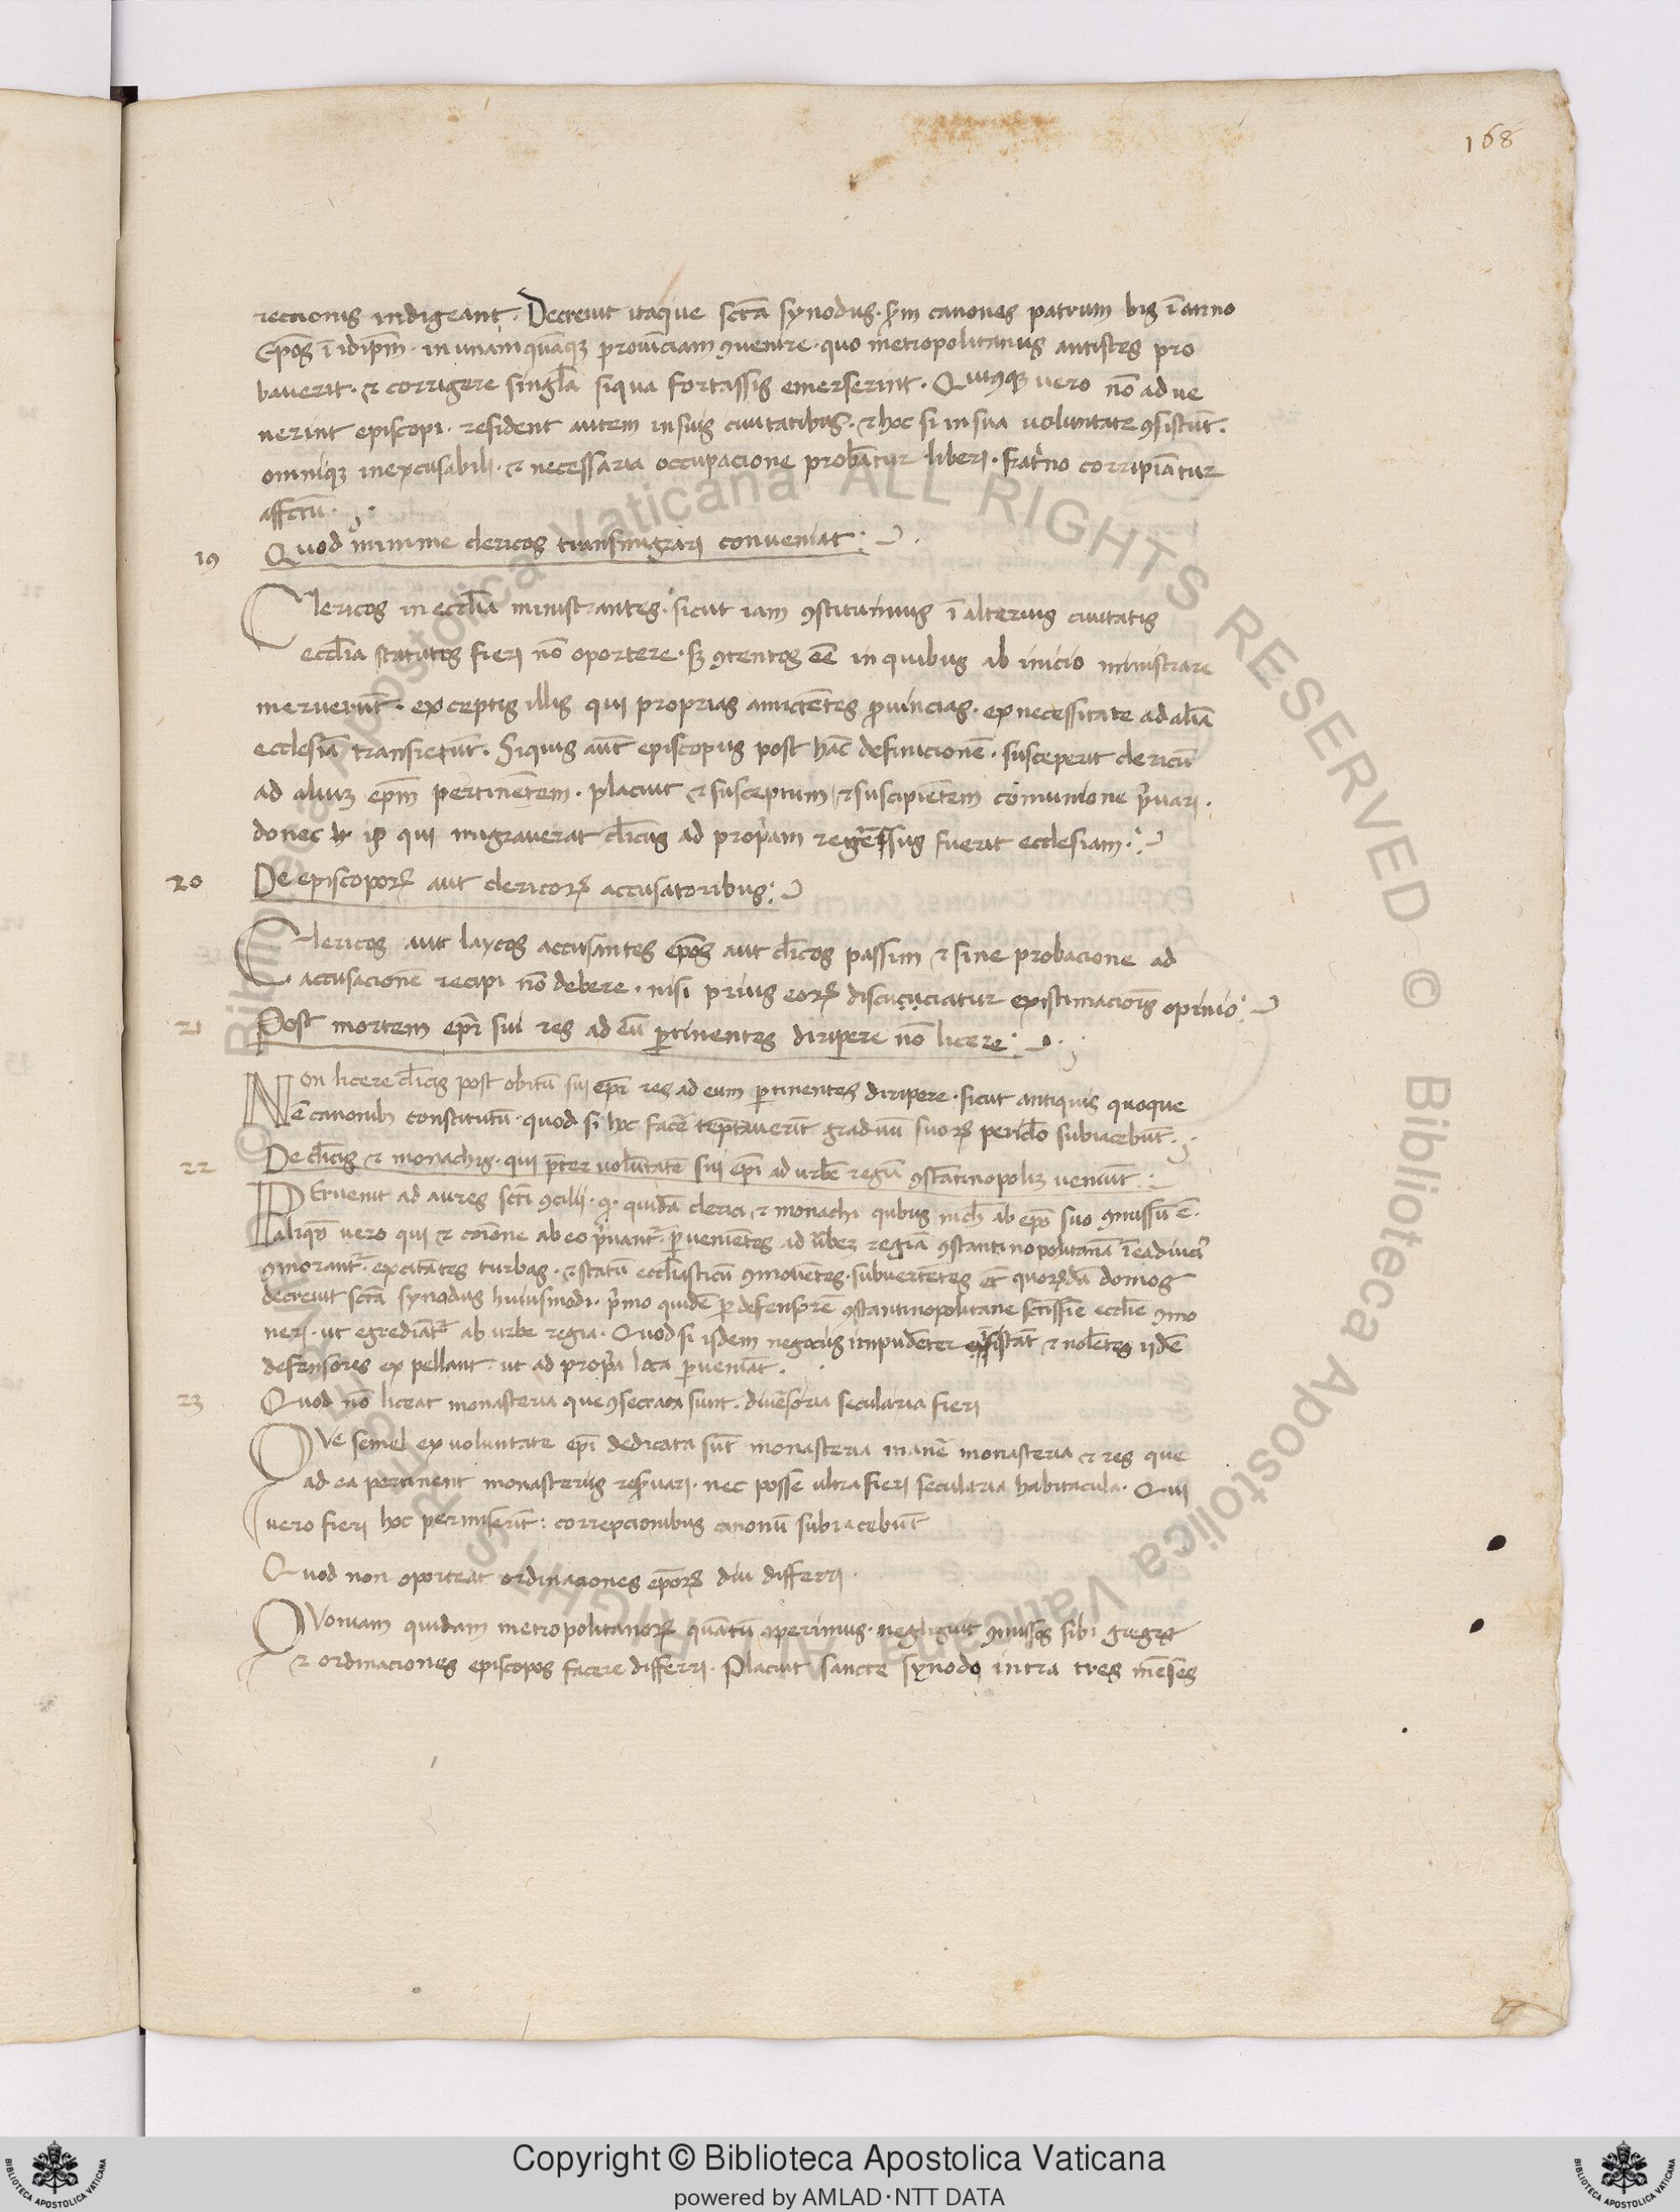 168
rectionis indigeant. Decreuit itaque sctā synodus. scdm canones patrum bis ī anno
Epōs ī idipm. in unam quāqz prouīnciam ꝯuenire. quo metropolitanus antistes pro
bauerit. et corrigere singl̄a siqua fortassis emerserint. Qui vero nō adue
nerint episcopi. resident autem in suis ciuitatibus. et hoc si in sua voluntate ꝯsistūt.
omniqz inexcusabili. et necessaria occupacione probātur liberi. frat'no corripiātur
affctū.
19 Quod minime clericos transmigrari conueniat:
Clericos in eccl̄ia ministrantes. sicut iam ꝯstituimus ī alterius ciuitatis
eccl̄ia statutos fieri nō oportere. sꝫ ꝯtentos eē in quibus ab inicio ministrare
meruerūt. exceptis illis qui proprias amictētes ꝓuincias. ex necessitate ad aliā
ecclesiā transierūt. Siquis aūt episcopus post hāc definicionē. susceperit clericū
ad aliuꝫ epm̄ pertinētem. placuit et susceptum et suscipiētem comunione p'uari.
donec is qui migrauerat cl̄icus ad prop'am regressus fuerit ecclesiam.
20 De episcoporꝝ aut clericorꝝ accusatoribus:
Clericos aut laycos accusantes epōs aut cl̄icos passim et sine probacione ad
accusacionē recipi nō debere. nisi prius eorꝝ discuciatur existimacionis opinio
21 Post mortem epī sui res ad eū ꝑtinentes diripere nō licere:
Non licere cl̄icis post obitū sui epī res ad eum ꝑtinentes diripere. sicut antiquis quoque
ē canonibꝫ constitutū. quod si hoc facē temptauerīt graduū suorꝝ pericl̄o subiacebūt.
22 De cl̄icis et monachis. qui p̄ter volūtatē sui epī ad urbē regiā ꝯstātinopoliꝫ veniūt:
Peruenit ad aures sctī ꝯcilij. ꝙ quidā clerici et monachi quibus nich' ab epō suo ꝯmissū ē.
aliqn̄ vero qui et coīone ab eo p'uant'. ꝑuenietes ad urbeꝫ regiā ꝯstantinopolitanā ī ea diuci'
ꝯmorant'. excitātes turbas. et statū eccl̄iasticū ꝯmouētes. subuertētes et quorꝝdā domos
decreuit sctā synodus huiusmodi. p'mo quidē ꝑ defensorē ꝯstantinopolitane sctissīe eccl̄ie ꝯmo
neri. ut egrediāt' ab urbe regia. Quod si isdem negociis impudēter ꝑsistāt et nolētes ijdē
defensores expellant. ut ad prop'a loca ꝑueniāt.
23 Quod nō liceat monasteria que ꝯsecrata sunt. diuersoria secularia fieri
Que semel ex voluntate epī dedicata sūt monasteria manē monasteria et res que
ad ea pertinent monasteriis reseruari. nec posse ultra fieri secularia habitacula. Qui
vero fieri hoc permiserīt: correpcionibus canonū subiacebūt
Quod non oporteat ordinaciones epōrꝝ diu differri.
Quoniam quidam metropolitanorꝝ quātū comperimus. negligunt ꝯmissos sibi greges
et ordinaciones episcopos facere differri. Placuit sancte synodo intra tres mēses
Copyright © Biblioteca Apostolica Vaticana
powered by AMLAD·NTT DATA